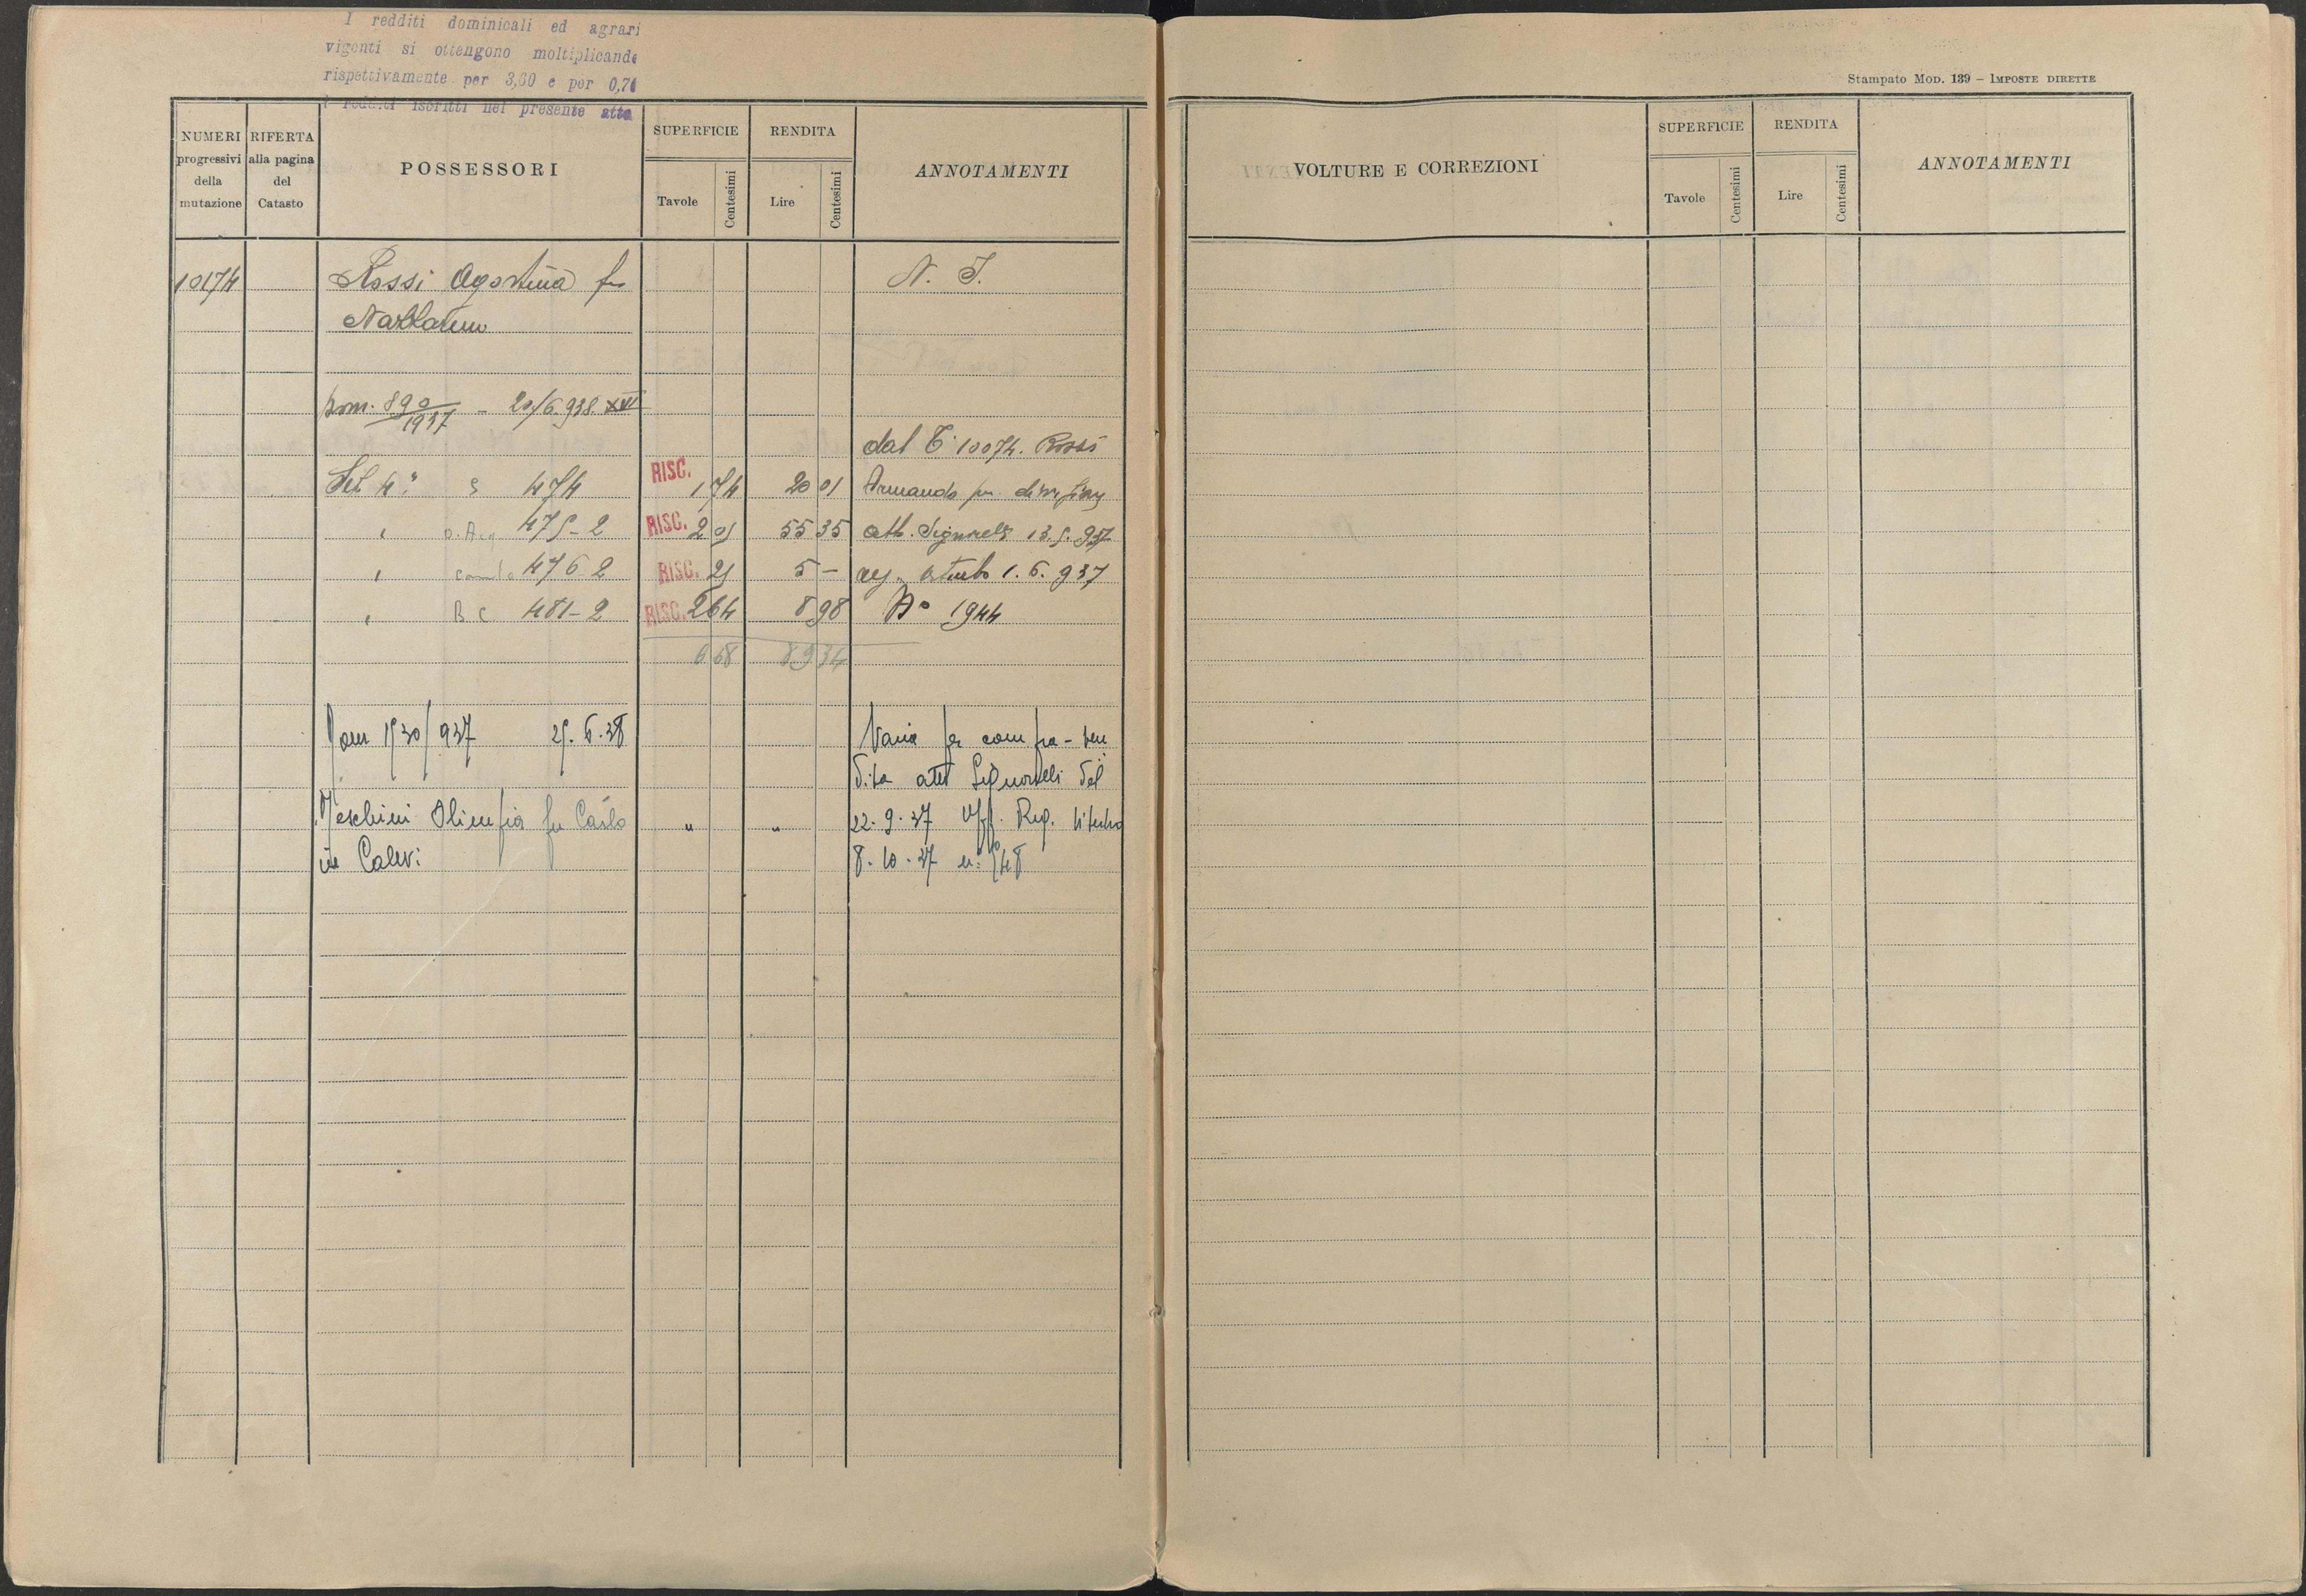 I redditi dominicali ed agrari
vigenti si ottengono moltiplicando
rispettivamente per 3,60 e per 0,70
i redditi iscritti nel presente atto
Stampato MOD. 139 – IMPOSTE DIRETTE
NUMERI progressivi della mutazione
RIFERTA alla pagina del Catasto
POSSESSORI
SUPERFICIE
Tavole
Centesimi
RENDITA
Lire
Centesimi
ANNOTAMENTI
10174 Rossi Agostina fu N. T.
dom. 890/1937 – 20/6.938. XVI
dal T 10074. Rossi
Sez 4ª S 474 RISC. 1 74 20 01 Armando per
" o. Arg 475-2 RISC. 2 05 55 35 att. Signorelli 13.5.937
" 476-2 RISC. 25 5 – reg. Viterbo 1.6.937
" B C 481-2 RISC. 2 64 8 98 N° 1944
6 68 89 34
Dom 1530/937 25.6.38 Varia per compra-ven
dita atto Signorelli del
Meschini Olimpia fu Carlo " " 22.9.37 Uff. Reg. Viterbo
in Calevi 8.10.37 n:
VOLTURE E CORREZIONI
SUPERFICIE
Tavole
Centesimi
RENDITA
Lire
Centesimi
ANNOTAMENTI